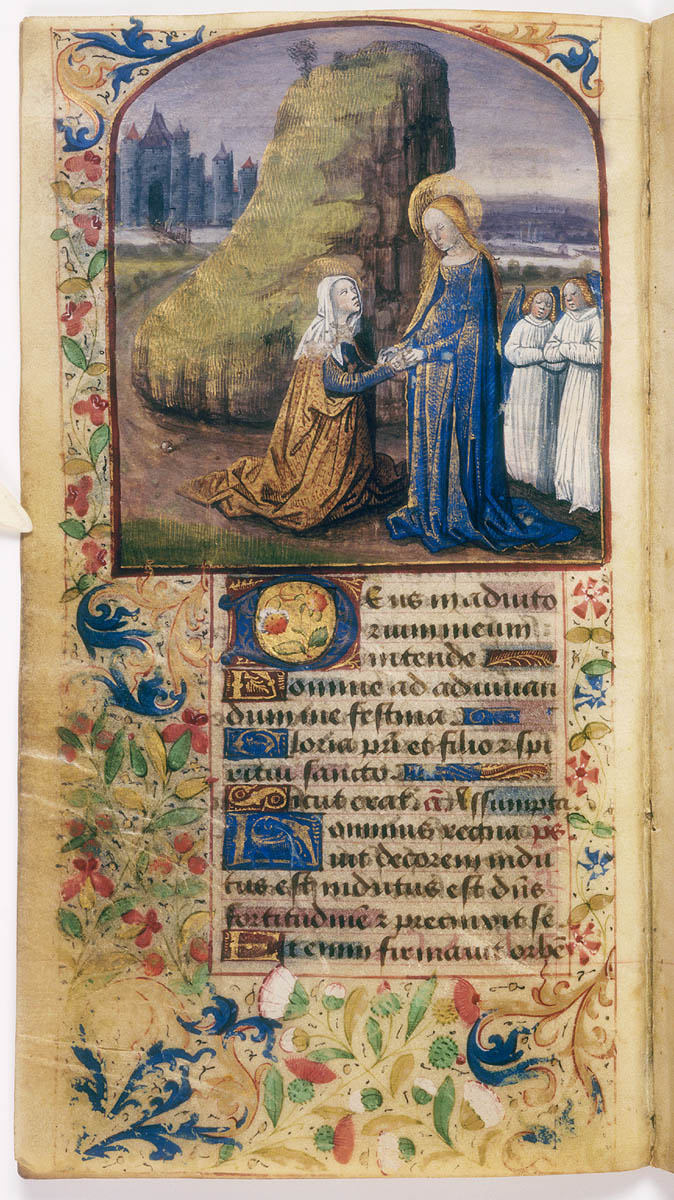 Deus in adiuto
rium meum
intende
Domine ad adiuuan
dum me festina
Gloria pr̄i et filio ⁊ spi
ritui sancto
Sicut erat. a᷎ Assumpta.
Dominus regna ps̄
uit decorem indu
tus est indutus est dn̄s
fortitudinē ⁊ precinxit se
Etenim firmauit orbē